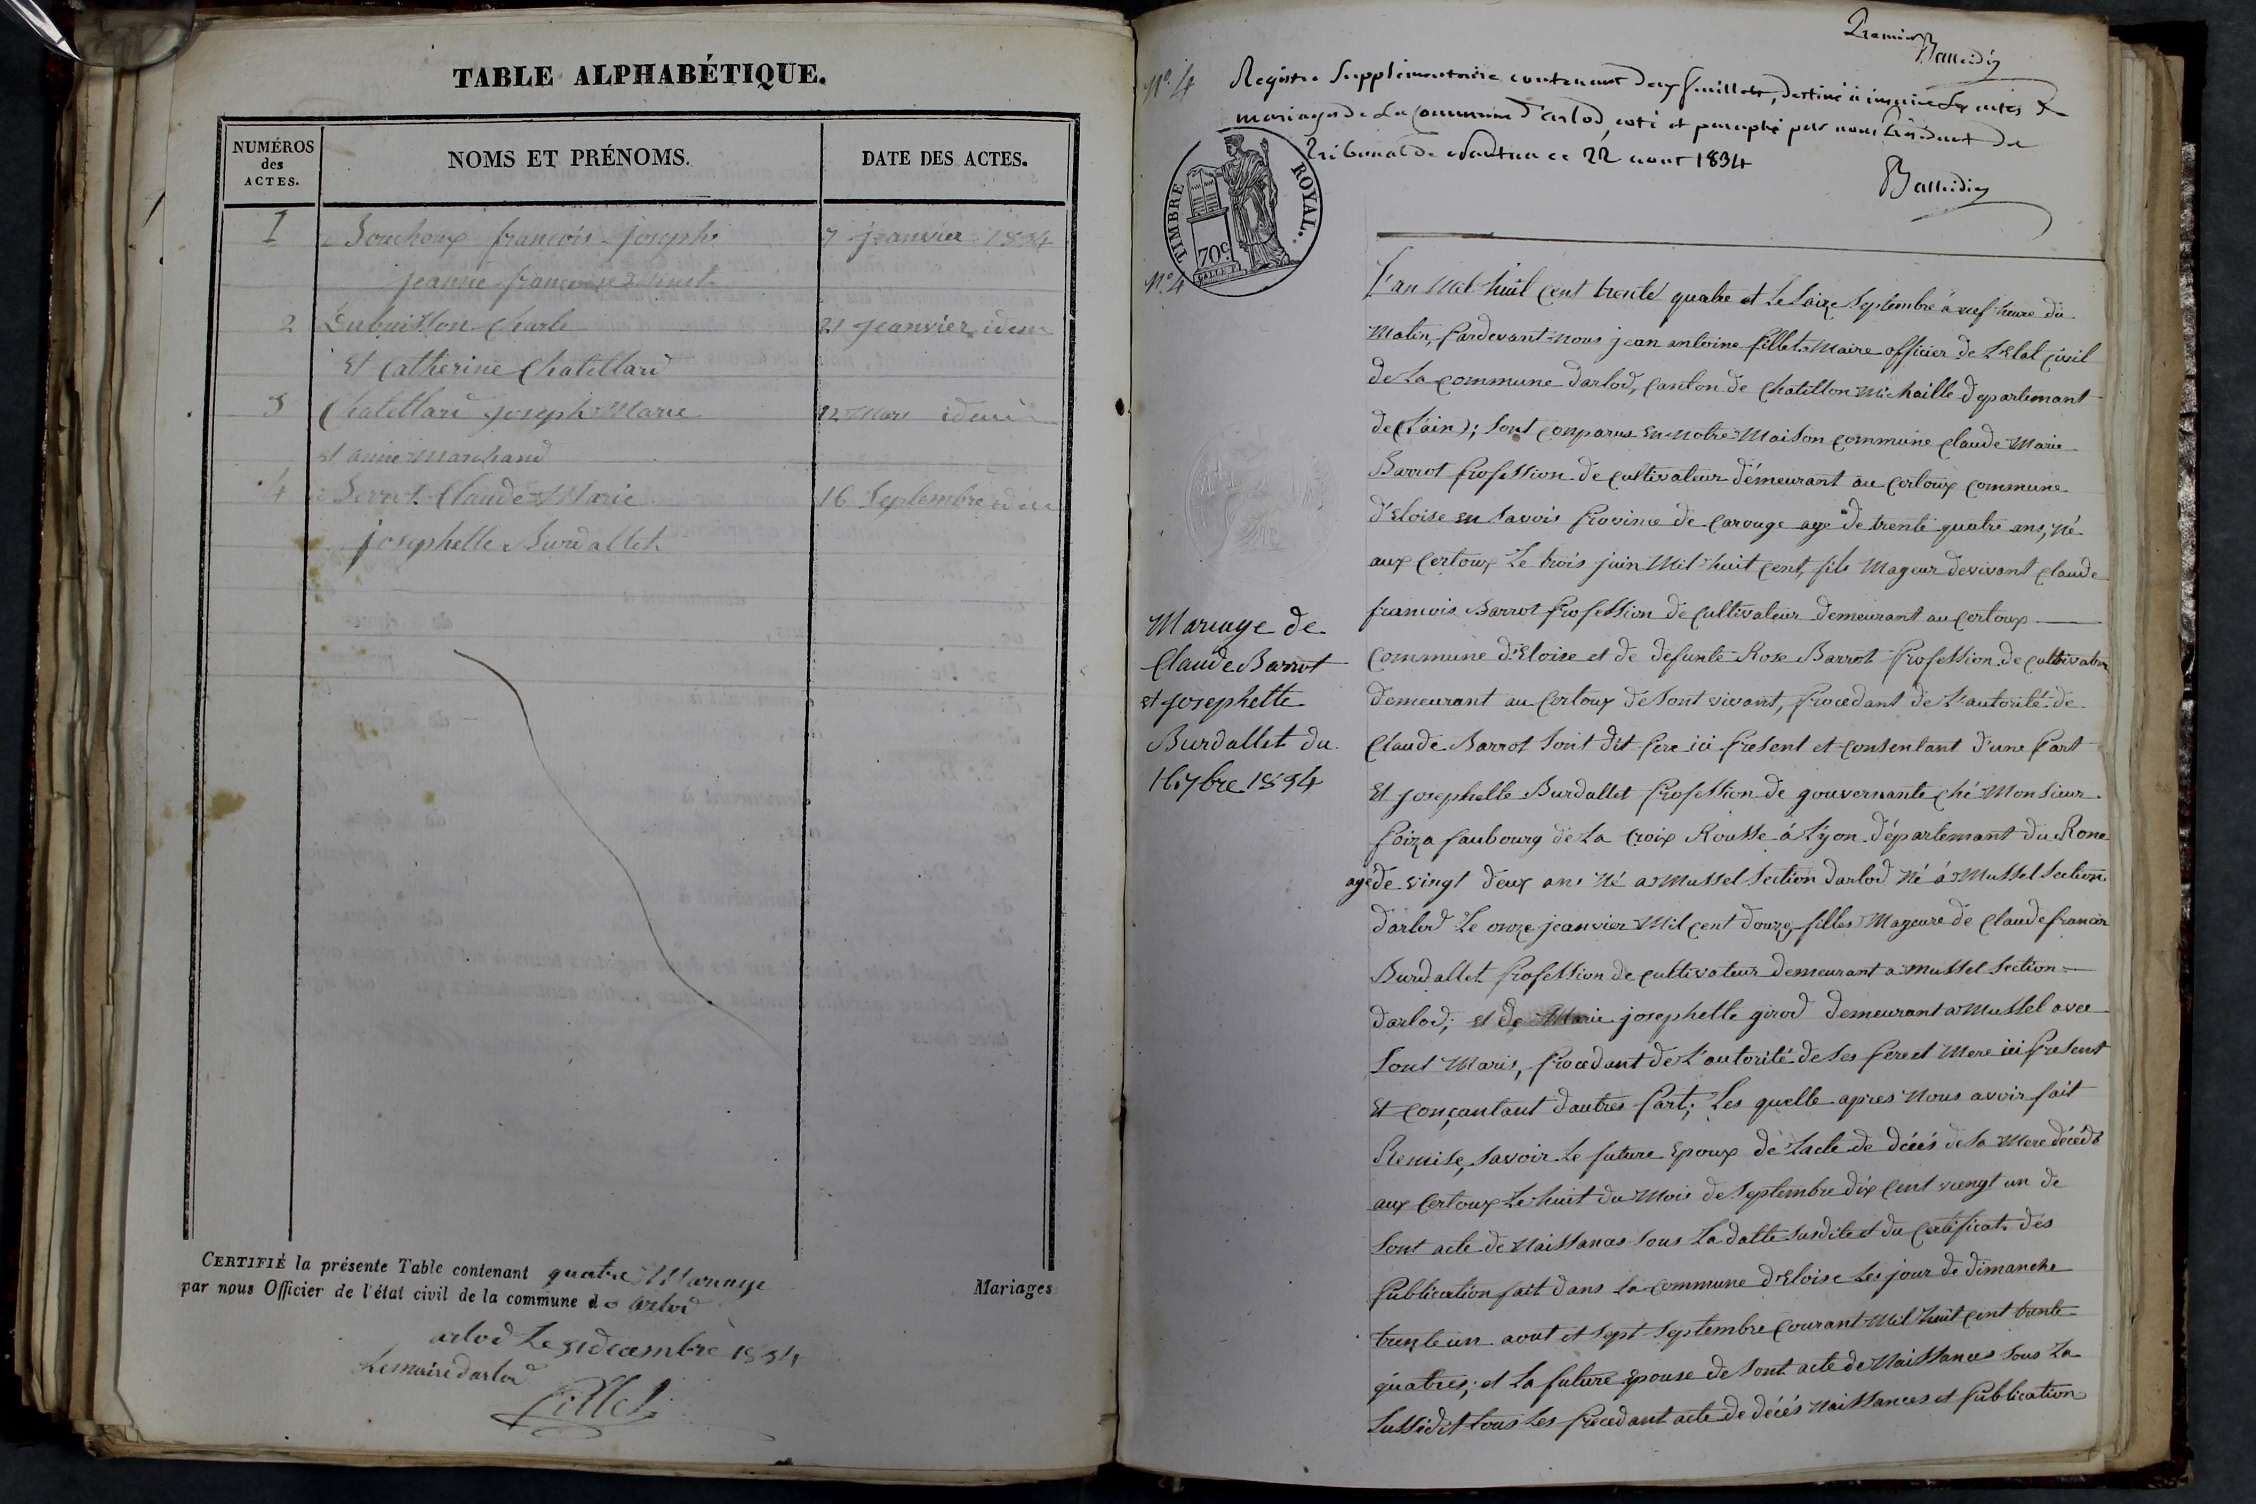 TABLE ALPHABÉTIQUE.
NUMÉROS
des
ACTES.
NOMS ET PRÉNOMS.
DATE DES ACTES.
I Bouchoux françois joseph 7 jeanvier 1834
jeanne françoise
2 Dubuisson Charle 21 jeanvier idem
Et Catherine Chatellard
3 Chatellard joseph Marie 12 Mars idem
et anne Marchand
4 Berrot Claude Marie 16 Septembre idem
josephette Burdallet
CERTIFIÉ la présente Table contenant quatre Mariage
Mariages
par nous Officier de l'état civil de la commune d arlod
arlod Le 31 decembre 1834
Lemaire darlod
Fillet
Premier
N°. 4
Registre Supplémentaire contenant deux feuillets, destiné à inscrire les actes de
mariages de La Commune d'arlod, coté et paraphé par nous Président de
Tribunal de Nantua ce 22 aout 1834
TIMBRE ROYAL.
70c
N°. 4
L'an Mil huit cent trente quatre et Le Saize Septembre à neuf heure du
Matin, Pardevant nous jean antoine fillet Maire officier de L'Etat çivil
de La commune darlod, Canton de Chatillon Michaille departemant
de (L'ain); Sont Conparus En notre Maison commune Claude Marie
Barrot Profession de Cultivateur démeurant au Certoux commune
d'Eloise En Savois Province de Carouge age de trente quatre ans, né
aux Certoux Le trois juin Mil huit Cent, fils Mageur devivant Claude
francois Barrot Profession de Cultivateur demeurant au Certoux
Commune d'Eloise et de defunte Rose Barrot Profession de Cultivateur
demeurant au Certoux de Sont vivant, Procedant de L'autorité de
Claude Barrot Sont dit Pere ici Present et Consentant d'une Part
Et josephette Burdallet Profession de gouvernante Ché Monsieur
Poiza faubourg de La Croix Rousse à Lÿon département du Rone
age de vingt deux ans Né a Mussel Section darlod Né à Mussel Section
darlod Le onze jeanvier Mil cent douze, filles Mageure de Claude francois
Burdallet Profession de cultivateur demeurant a Mussel Section
darlod; et de Marie josephette girod demeurant a Mussel avec
Sont Maris, Procedant de L'autorité de Ses Pere et Mere ici Present
Et conçantant dautres Part; Les quelle apres Nous avoir fait
Remise, Savoir Le future Epoux de Lacte de décés de Sa Mere décédé
aux Certoux Le huit du Mois de Septembre dix Cent vengt un de
Sont acte de Naissances Sous La datte Susdite et du Certificat des
Publication fait dans La commune d'Eloise Les jour de dimanche
trente un aout et Sept Septembre Courant Mil huit cent trente
quatres; et La future Epouse de Sont acte de Naissances Sous La
Sussédit tous Les Précedant acte de décés Naissances et Publication
Mariage de
Claude Barrot
et josephette
Burdallet du
16 7bre 1834